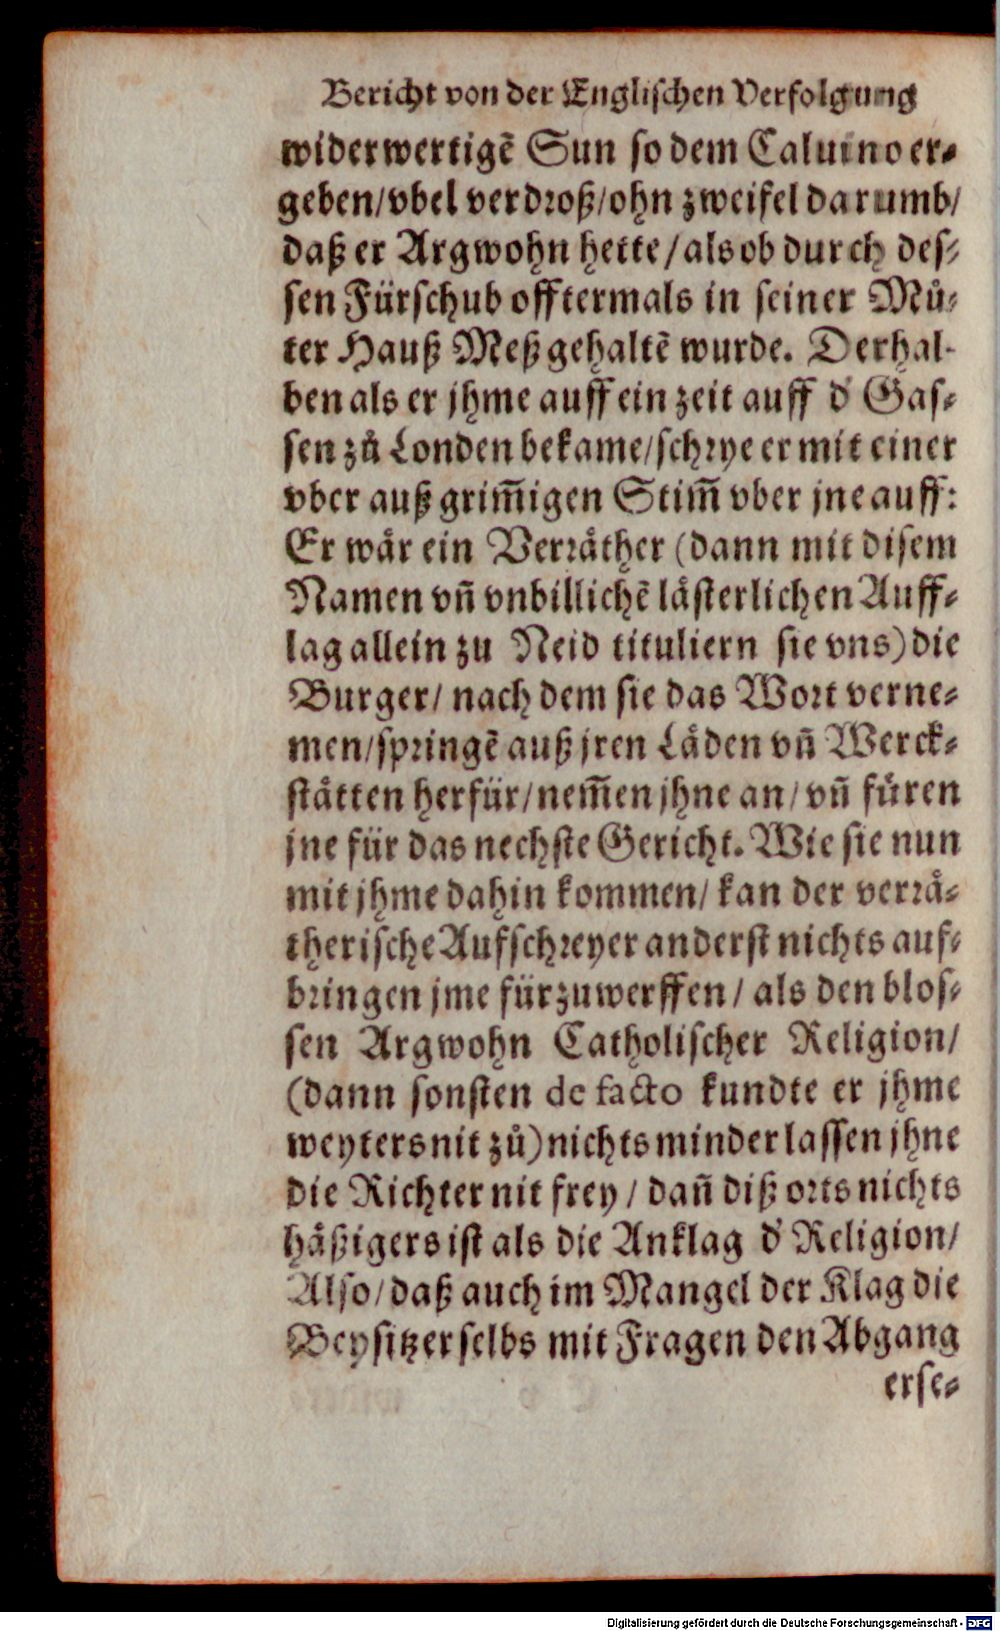 Bericht von der Englischen Verfolgung
widerwertigẽ Sun so dem Caluino er⸗
geben/vbel verdroß/ohn zweifel darumb/
daß er Argwohn hette/als ob durch des⸗
sen Fürschub offtermals in seiner Mů⸗
ter Hauß Meß gehaltẽ wurde. Derhal⸗
ben als er jhme auff ein zeit auff d' Gas⸗
sen zů Londen bekame/schrye er mit einer
vber auß grim̃igen Stim̃ vber jne auff:
Er wår ein Verråther (dann mit disem
Namen vñ vnbillichẽ låsterlichen Auff⸗
lag allein zu Neid tituliern sie vns) die
Burger/ nach dem sie das Wort verne⸗
men/springẽ auß jren Låden vñ Werck⸗
ståtten herfür/nem̃en jhne an/vñ fůren
jne für das nechste Gericht. Wie sie nun
mit jhme dahin kommen/ kan der verrå⸗
therische Aufschreyer anderst nichts auf⸗
bringen jme fürzuwerffen/ als den blos⸗
sen Argwohn Catholischer Religion/
(dann sonsten de facto kundte er jhme
weyters nit zů) nichts minder lassen jhne
die Richter nit frey/ dañ diß orts nichts
håßigers ist als die Anklag d' Religion/
Also/daß auch im Mangel der Klag die
Beysitzer selbs mit Fragen den Abgang
erse⸗
Digitalisierung gefördert durch die Deutsche Forschungsgemeinschaft - DFG